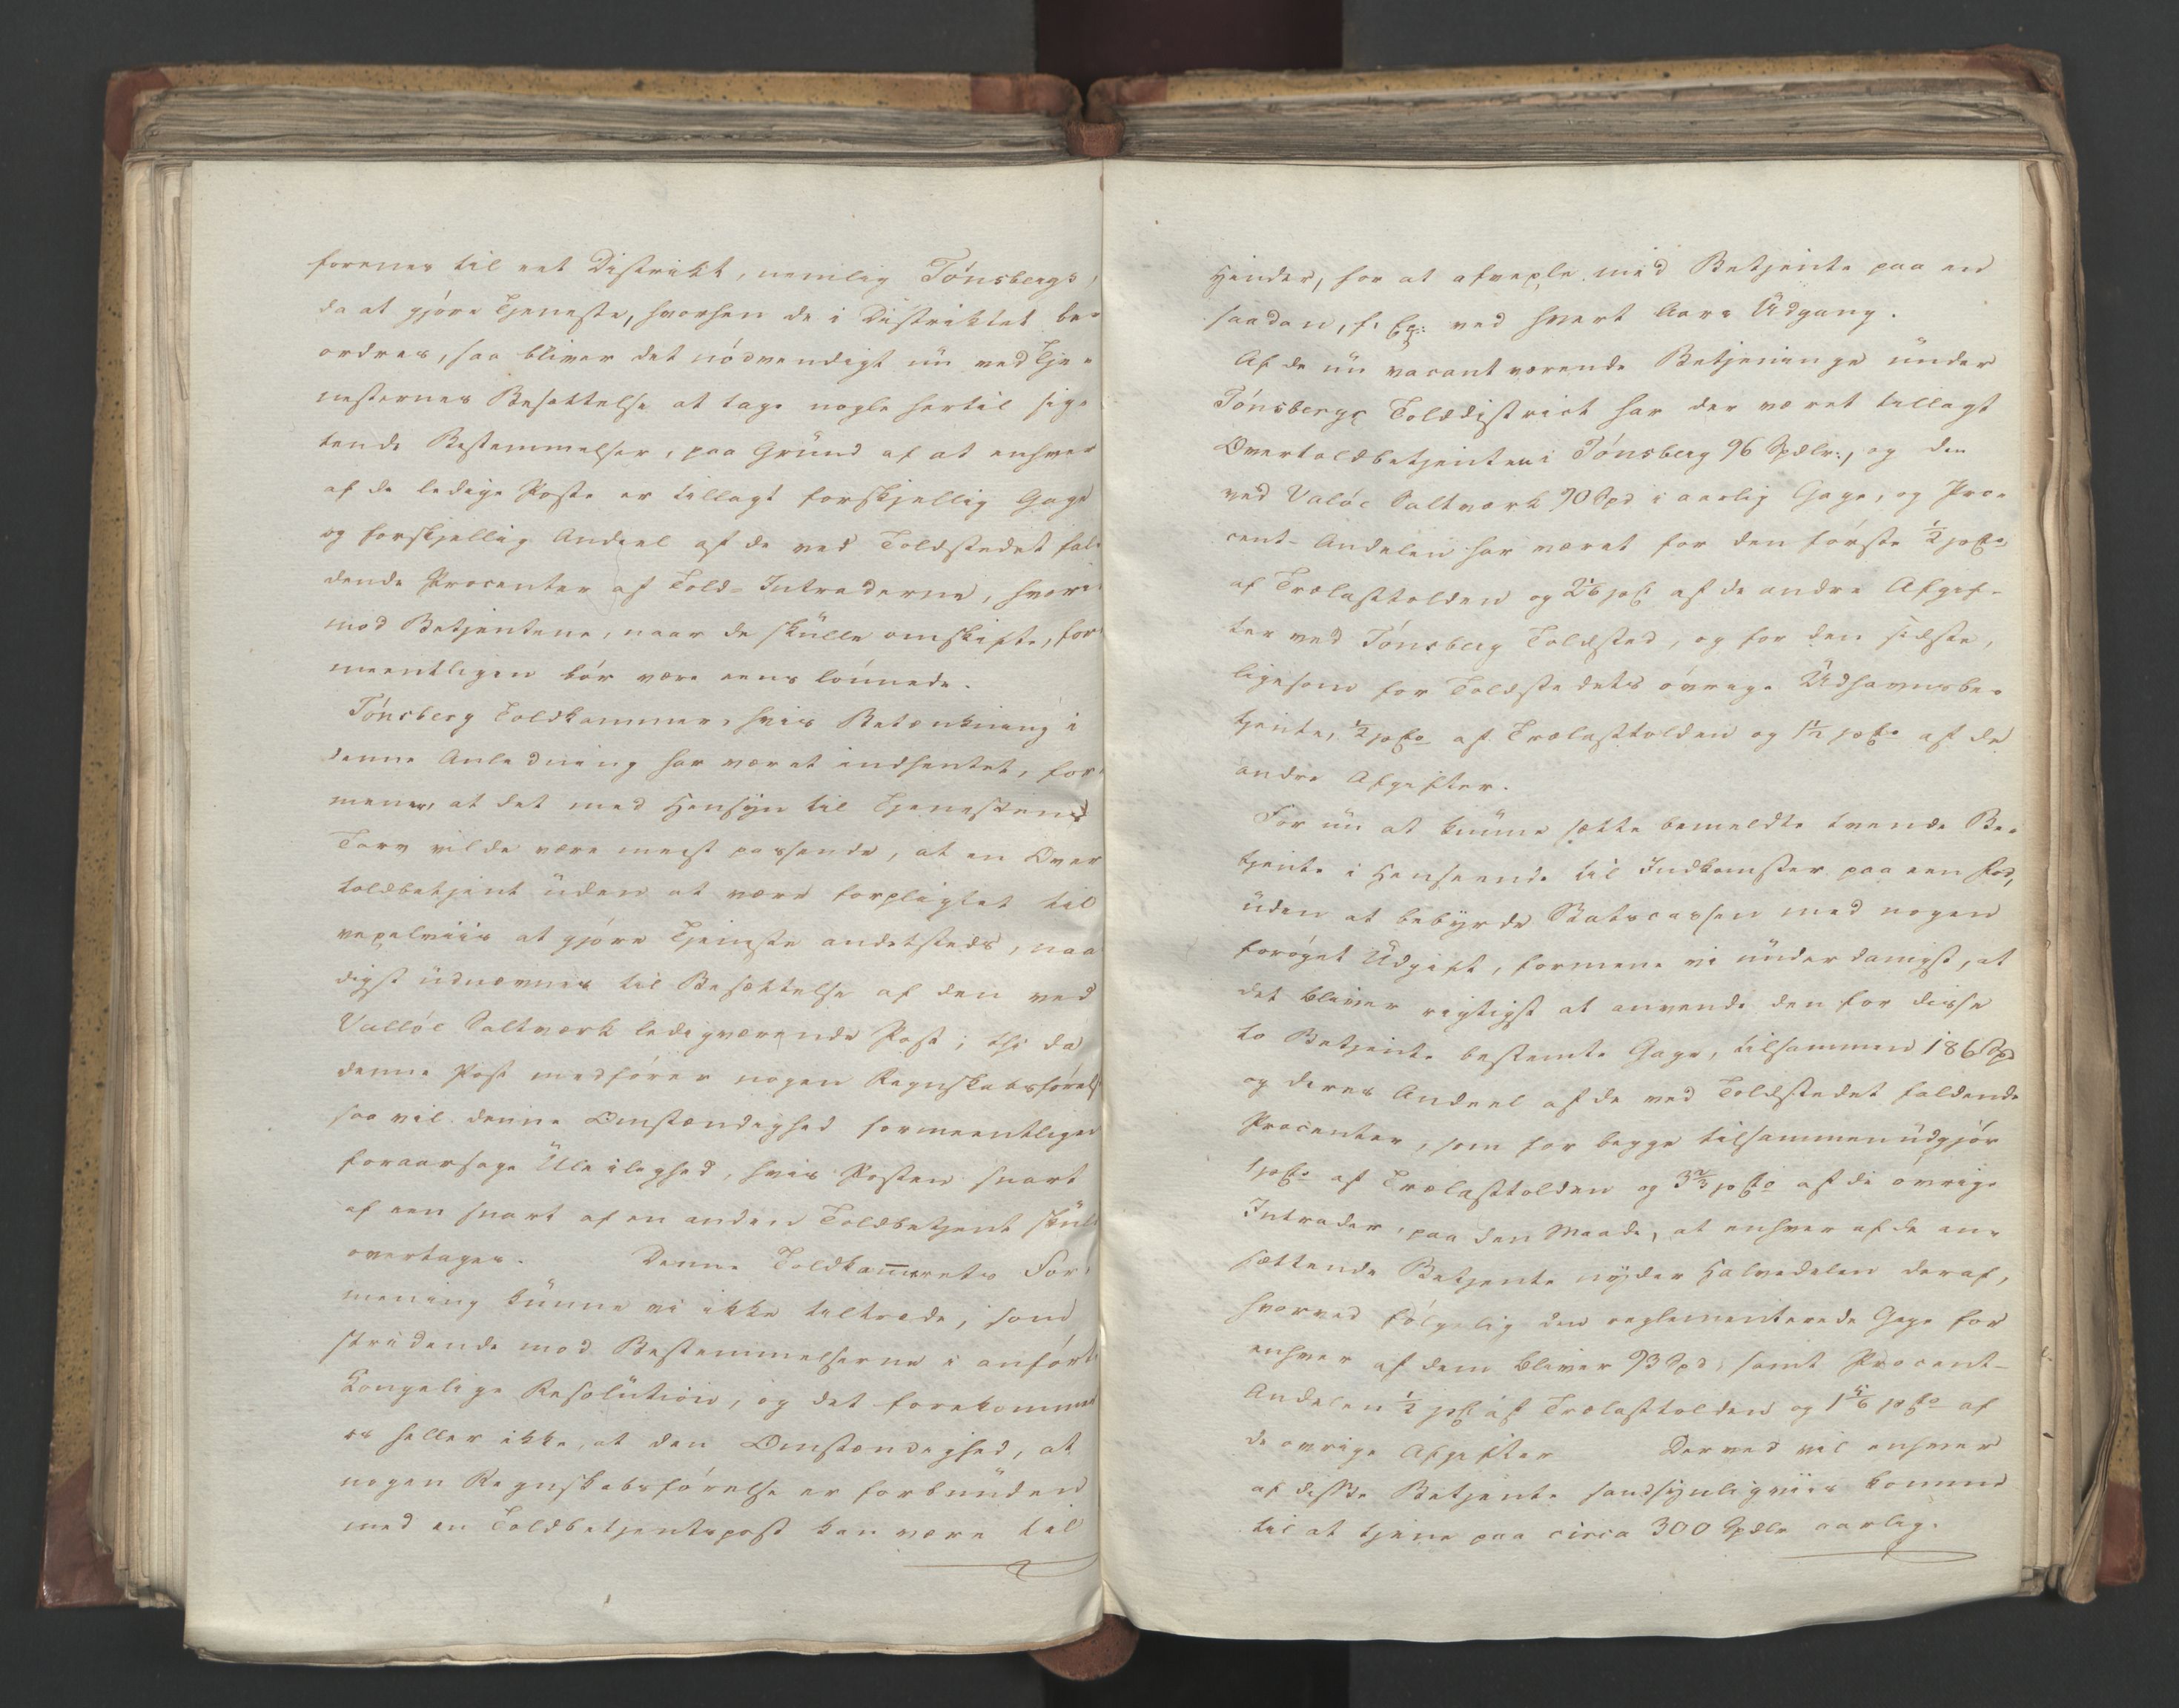 forenes til eet Distrikt, nemlig Tönsbergs,
da at gjöre Tjeneste, hvorhen de i Distriktet be-
ordres, saa bliver det nödvendigt nu ved Tje-
nesternes Besættelse at tage nogle hertil sig-
tende Bestemmelser, paa Grund af at enhver
af de ledige Poste er tillagt forskjellig Gage
og forskjellig Andeel af de ved Toldstedet fal-
dende Procenter af Told-Intraderne, hvori-
mod Betjentene, naar de skulle omskifte, for-
meentligen bör være eens lönnede.
Tönsberg Toldkammer, hvis Betænkning i
denne Anledning har været indhentet, for-
mener, at det med Hensyn til Tjenestens
Tarv vilde være meest passende, at en Over
toldbetjent uden at være forpligtet til
vexelviis at gjöre Tjeneste andetsteds, naa
digst udnævnes til Besættelse af den ved
Vallöe Saltværk ledigværende Post; thi da
denne Post medförer nogen Regnskabsförelse
saa vil denne Omstændighed formeentligen
foraarsage Uleilighed, hvis Posten snart
af een snart af en anden Toldbetjent skul
overtages. Denne Toldkammerets For-
mening kunne vi ikke tiltræde, som
stridende mod Bestemmelserne i anförte
Kongelige Resolution, og det forekommer
os heller ikke, at den Omstændighed, at
nogen Regnskabsförelse er forbunden
med en Toldbetjentspost kan være til
Hinder, for at afvexle med Betjente paa en
saadan, f. Ex: ved hvert Aars Udgang.
Af de nu vacant værende Betjeninge under
Tönsbergs Tolddistrict har der været tillagt
Overtoldbetjenten i Tönsberg 96 Spdlr:, og den
ved Valöe Saltværk 90 Spd i aarlig Gage, og Pro-
cent-Andelen har været for den förste ½ pCto
af Trælasttolden og 2⅙ pCt af de andre Afgif-
ter ved Tönsberg Toldsted, og for den sidste,
ligesom for Toldstedets övrige Udhavnsbe-
tjente, ½ pCto af Trælasttolden og 1½ pCto af de
andre Afgifter.
For nu at kunne sætte bemeldte tvende Be-
tjente i Henseende til Indkomster paa een Fod,
uden at bebyrde Statscassen med nogen
foröget Udgift, formene vi underdanigst, at
det bliver rigtigst at anvende den for disse
to Betjente bestemte Gage, tilsammen 186 Spd
og deres Andeel af de ved Toldstedet faldende
Procenter, som for begge tilsammen udgjör
1 pCto af Trælasttolden og 3⅔ pCto af de övrige
Intrader, paa den Maade, at enhver af de an-
sættende Betjente nyder Halvedelen deraf,
hvorved fölgelig den reglementerede Gage for
enhver af dem bliver 93 Spd, samt Procent-
Andelen ½ pCt af Trælasttolden og 1⅚ pCto af
de övrige Afgifter Derved vil enhver
af disse Betjente sandsynligviis komme
til at tjene paa circa 300 Spdlr aarlig.